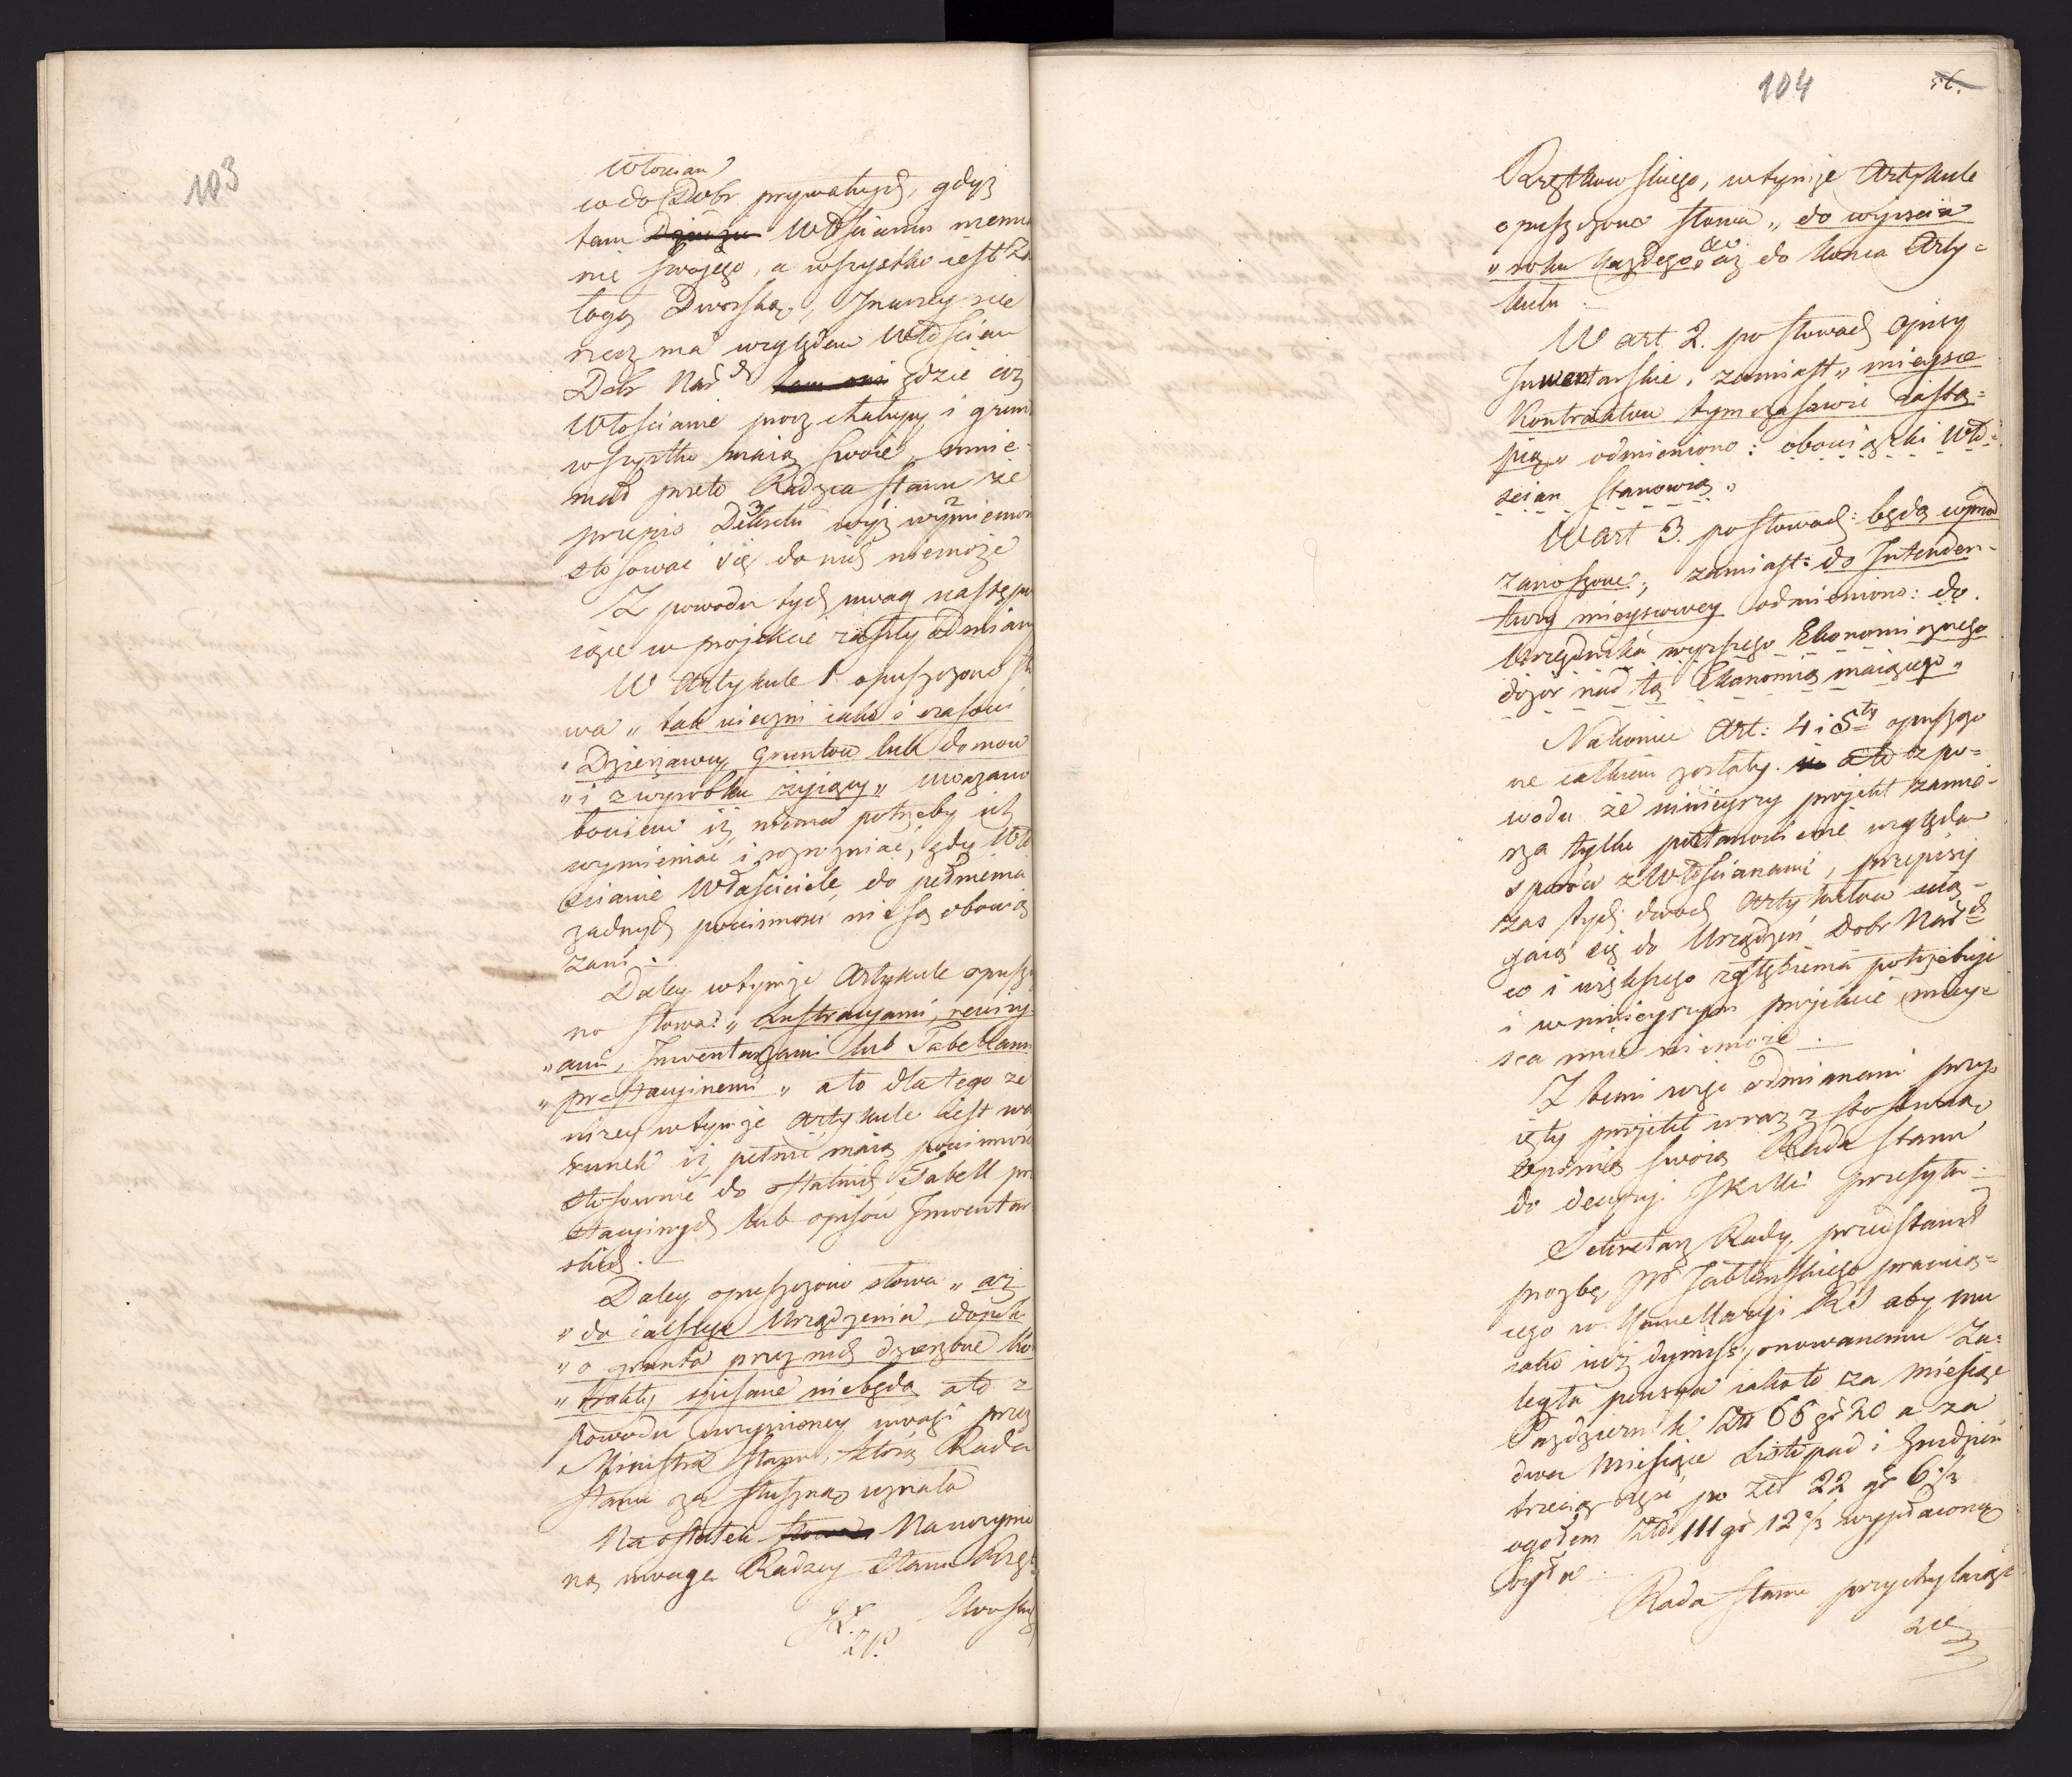 103
Włościan
co do Dobr prywatnych, gdyż
tam Włścianin niema
nic swojego, a wszystko iest Za
łogą Dworską, Inaczey się
rzecz ma względem Włościan
Dobr Nar.ch gdzie ciż
Włościanie procz chałupy i grun
wszystko maią swoie, mnie-
mał przeto Radzca Stanu że
przepis Dekretu wyż wymieniony
stosować się do nich niemoże
Z powodu tych uwag następu
iące w projekcie zaszły odmiany
W Artykule 1 opuszczono sło
wa „ tak wieczni iako i czasowi
„ Dzierżawcy Gruntow lub domow
„ i z wyrobku żyiący „ uważano
bowiem iż niema potrzeby ich
wymieniać i rozrozniać, gdy Wło
ścianie Właściciele do pełnienia
żadnych powinności nie są obowią
zani.
Daley w tymże Artykule opuszczo
no słowa: „ Lustracyami, rewizy-
„ ami, Inwentarzami lub Tabellami
„ prestacyinemi „ a to dla tego że
niżey w tymże Artykule iest wa
runek iż pełnić maią powinności
stosownie do ostatnich Tabell pre
stacyinych lub opisow Inwentar
skich.
Daley opuszczono słowa „ aż
„ do dalszego Urządzenia, dopok
„ o grunta przez nich dzierżone Ko
„ trakty spisane niebędą a to z
powodu uczynioney uwagi przez
Ministra Stanu, ktorą Rada
Stanu za słuszną uznała
Na ostatek Na uczynio
ną uwagę Radzcy Stanu Kręt
kowskie

104
56.
Krętkowskiego, w tymże Artykule
opuszczono słowa „ do wyiscia
„ roku każdego &c aż do konca Arty-
kułu
W art. 2. po słowach opisy
Inwentarskie, zamiast „ mieysce
Kontraktu tymczasowie zastą-
pią „ odmieniono: obowiązki Wło-
ścian stanowią „
W art 3. po słowach: będą wprost
zanoszone, zamiast: do Intenden-
tury mieyscowey odmieniono: do
Urzędnika wyższego Ekonomicznego
dozor nad tą Ekonomią maiącego „
Nakoniec Art: 4 i 5ty opuszczo
ne całkiem zostały. a to z po-
wodu że ninieyszy projekt zamie-
rza tylko postanowienie względem
sporow z Włościanami, przepisy
zas tych dwoch Artykułow scią-
gaią się do Urządzeń Dobr Nar.ch
co i większego zgłębienia potrzebuje
i w ninieyszym projekcie miey-
sca mieć niemoże.
Z temi więc odmianami przy-
ięty projekt wraz z stosowną
opinią swoią Rada Stanu
do decyzyi JKMci przesyła.
Sekretarz Rady przedstawił
prozbę JP Jabłonskiego pracuią-
cego w Kancellaryi RS aby mu
iako iuż dymissyonowanemu Za-
legła pensya iako to za miesiąc
Pazdziernik Złł 66 gr 20 a za
dwa miesiące Listopad i Grudzień
trzecią częsć po Złł 22 gr 6 2/3
ogołem Złł 111 gr 12 2/3 wypłaconą
była.
Rada Stanu przychylaiąc
się